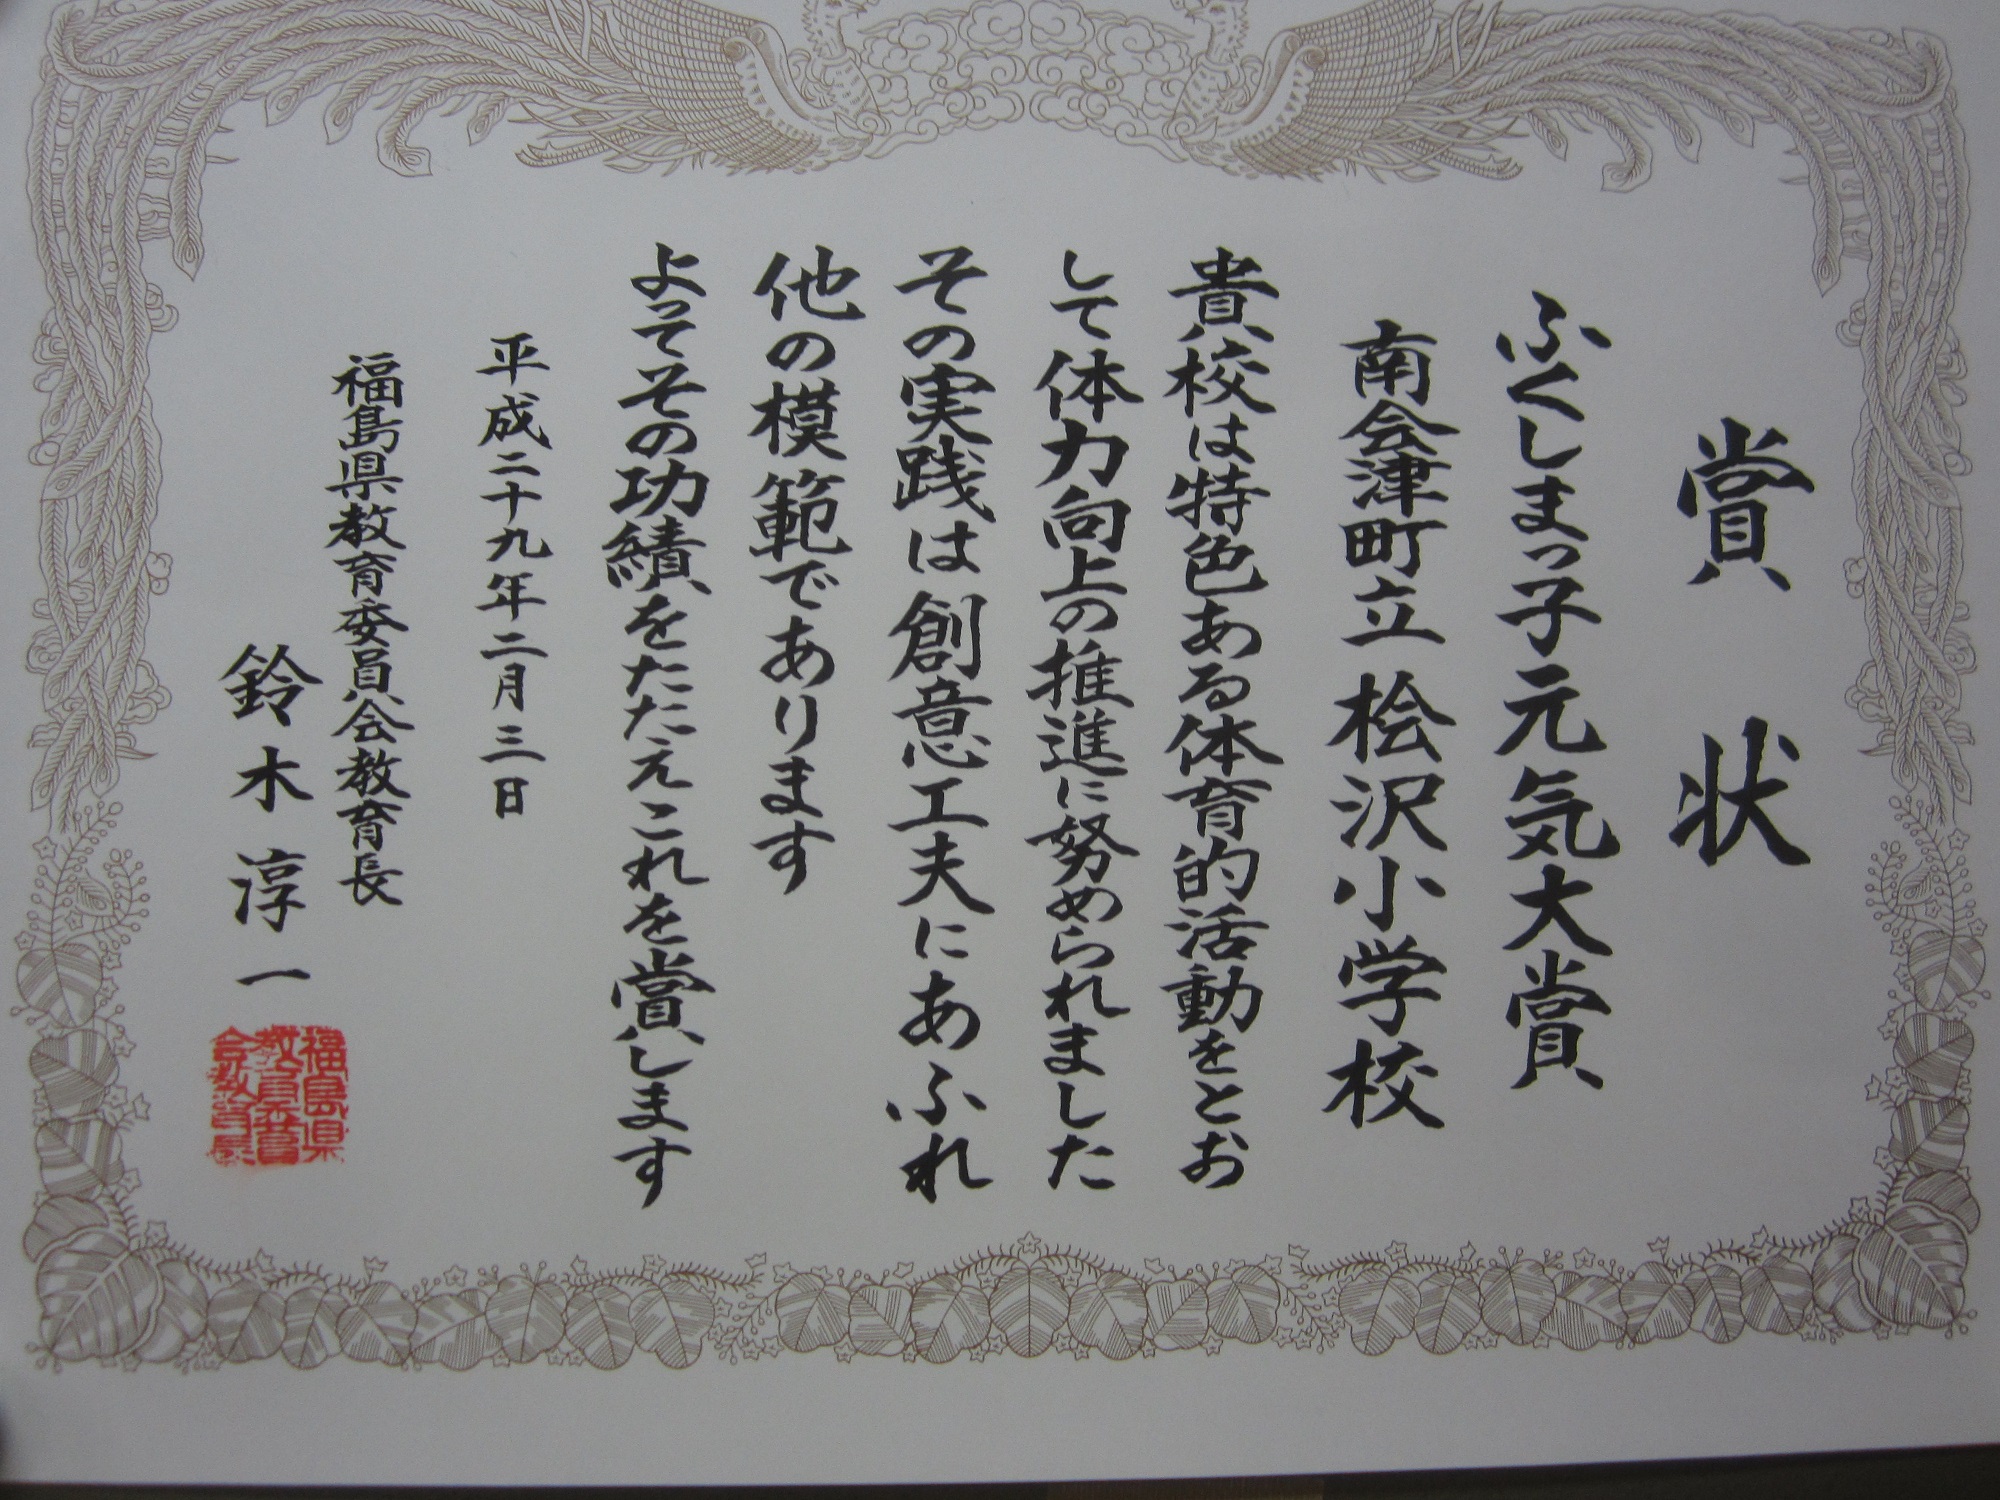 賞状
ふくしまっ子元気大賞
南会津町立桧沢小学校
貴校は特色ある体育的活動をとお
して体力向上の推進に努められました
その実践は創意工夫にあふれ
他の模範であります
よってその功績をたたえこれを賞します
平成二十九年二月三日
福島県教育委員会教育長
鈴木淳一
福島県
教育委員
会教育長